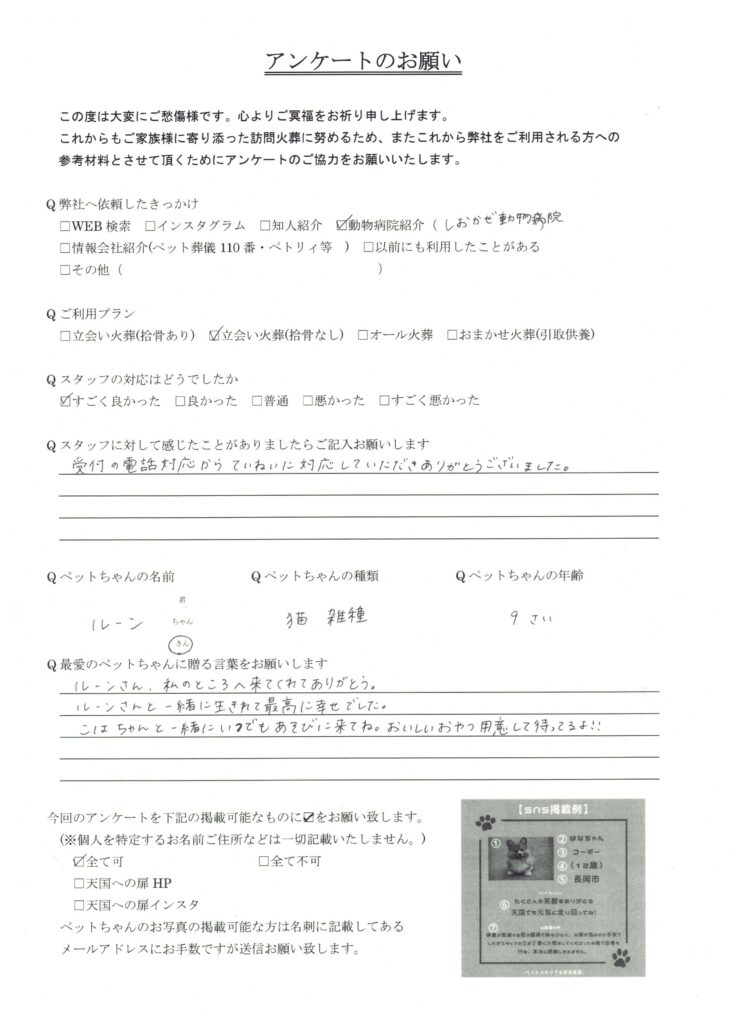 アンケートのお願い
この度は大変にご愁傷様です。心よりご冥福をお祈り申し上げます。
これからもご家族様に寄り添った訪問火葬に努めるため、またこれから弊社をご利用される方への
参考材料とさせて頂くためにアンケートのご協力をお願いいたします。
Q 弊社へ依頼したきっかけ
□WEB 検索 □インスタグラム □知人紹介 ☑動物病院紹介（しおかぜ動物病院）
□情報会社紹介(ペット葬儀 110 番・ペトリィ等 ) □以前にも利用したことがある
□その他（ ）
Q ご利用プラン
□立会い火葬(拾骨あり) ☑立会い火葬(拾骨なし) □オール火葬 □おまかせ火葬(引取供養)
Q スタッフの対応はどうでしたか
☑すごく良かった □良かった □普通 □悪かった □すごく悪かった
Q スタッフに対して感じたことがありましたらご記入お願いします
受付の電話対応からていねいに対応していただきありがとうございました。
Q ペットちゃんの名前 Q ペットちゃんの種類 Q ペットちゃんの年齢
君
ルーン ちゃん 猫 雑種 9さい
さん
Q 最愛のペットちゃんに贈る言葉をお願いします
ルーンさん、私のところへ来てくれてありがとう。
ルーンさんと一緒に生きれて最高に幸せでした。
こはちゃんと一緒にいつでもあそびに来てね。おいしいおやつ用意して待ってるよ!!
今回のアンケートを下記の掲載可能なものに☑をお願い致します。
(※個人を特定するお名前ご住所などは一切記載いたしません。)
☑全て可 □全て不可
□天国への扉 HP
□天国への扉インスタ
ペットちゃんのお写真の掲載可能な方は名刺に記載してある
メールアドレスにお手数ですが送信お願い致します。
【sns掲載例】
① ②はなちゃん
③コーギー
④(12歳)
⑤長岡市
⑥たくさんの笑顔をありがとう
天国でも元気に走り回ってね!
⑦